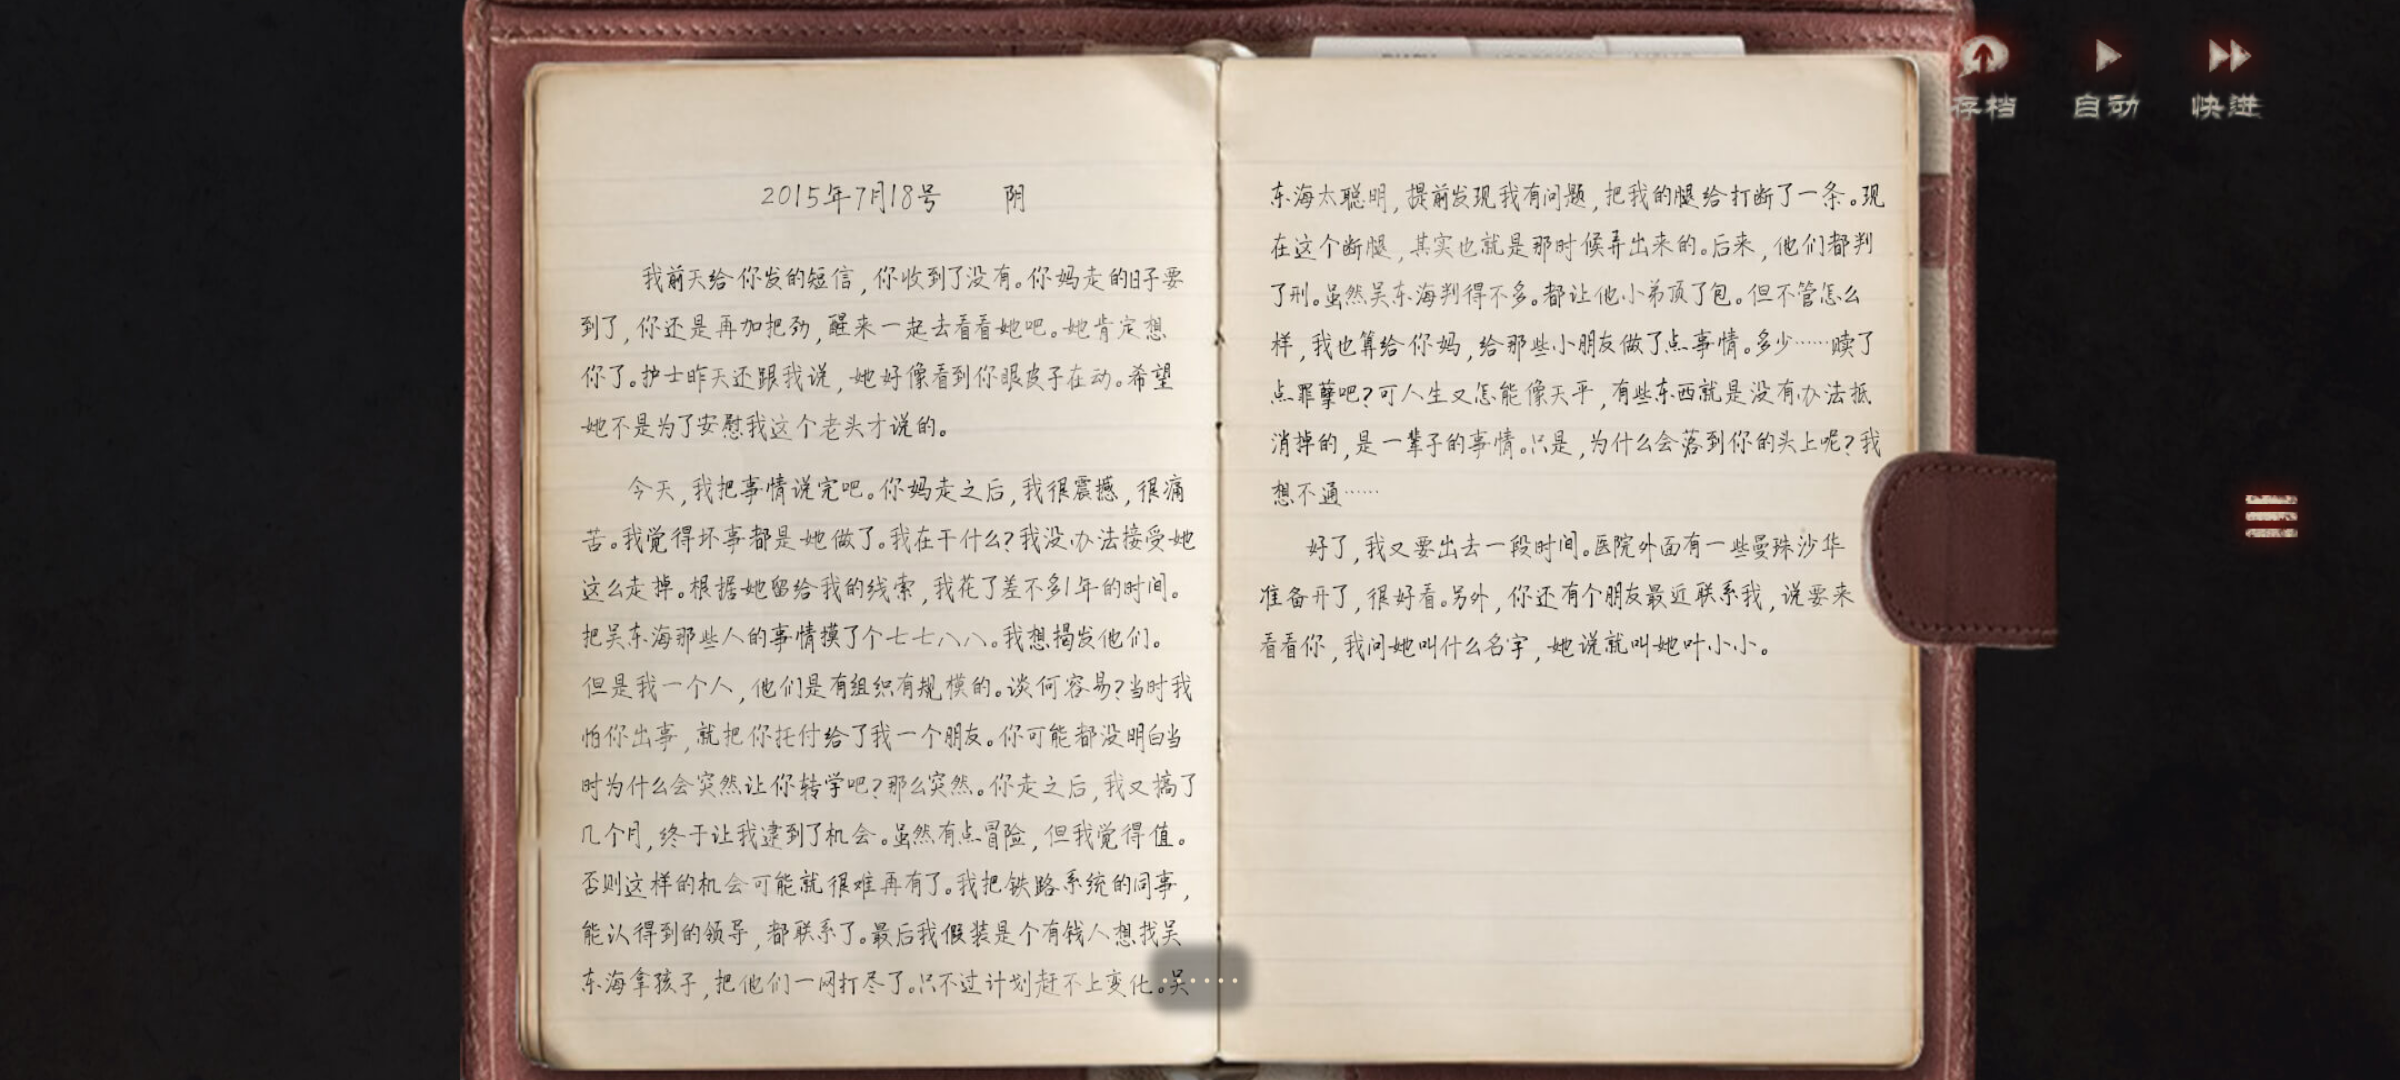 存档
自动
快进
2015年7月18号 阴
我前天给你发的短信,你收到了没有。你妈走的日子要
到了,你还是再加把劲,醒来一起去看看她吧。她肯定想
你了。护士昨天还跟我说,她好像看到你眼皮子在动。希望
她不是为了安慰我这个老头才说的。
今天,我把事情说完吧。你妈走之后,我很震撼,很痛
苦。我觉得坏事都是她做了。我在干什么?我没办法接受她
这么走掉。根据她留给我的线索,我花了差不多1年的时间。
把吴东海那些人的事情摸了个七七八八。我想揭发他们。
但是我一个人,他们是有组织有规模的。谈何容易?当时我
怕你出事,就把你托付给了我一个朋友。你可能都没明白当
时为什么会突然让你转学吧?那么突然。你走之后,我又搞了
几个月,终于让我逮到了机会。虽然有点冒险,但我觉得值。
否则这样的机会可能就很难再有了。我把铁路系统的同事,
能认得到的领导,都联系了。最后我假装是个有钱人想找吴
东海拿孩子,把他们一网打尽了。只不过计划赶不上变化。吴
东海太聪明,提前发现我有问题,把我的腿给打断了一条。现
在这个断腿,其实也就是那时候弄出来的。后来,他们都判
了刑。虽然吴东海判得不多。都让他小弟顶了包。但不管怎么
样,我也算给你妈,给那些小朋友做了点事情。多少……赎了
点罪孽吧?可人生又怎能像天平,有些东西就是没有办法抵
消掉的,是一辈子的事情。只是,为什么会落到你的头上呢?我
想不通……
好了,我又要出去一段时间。医院外面有一些曼珠沙华
准备开了,很好看。另外,你还有个朋友最近联系我,说要来
看看你,我问她叫什么名字,她说就叫她叶小小。
……